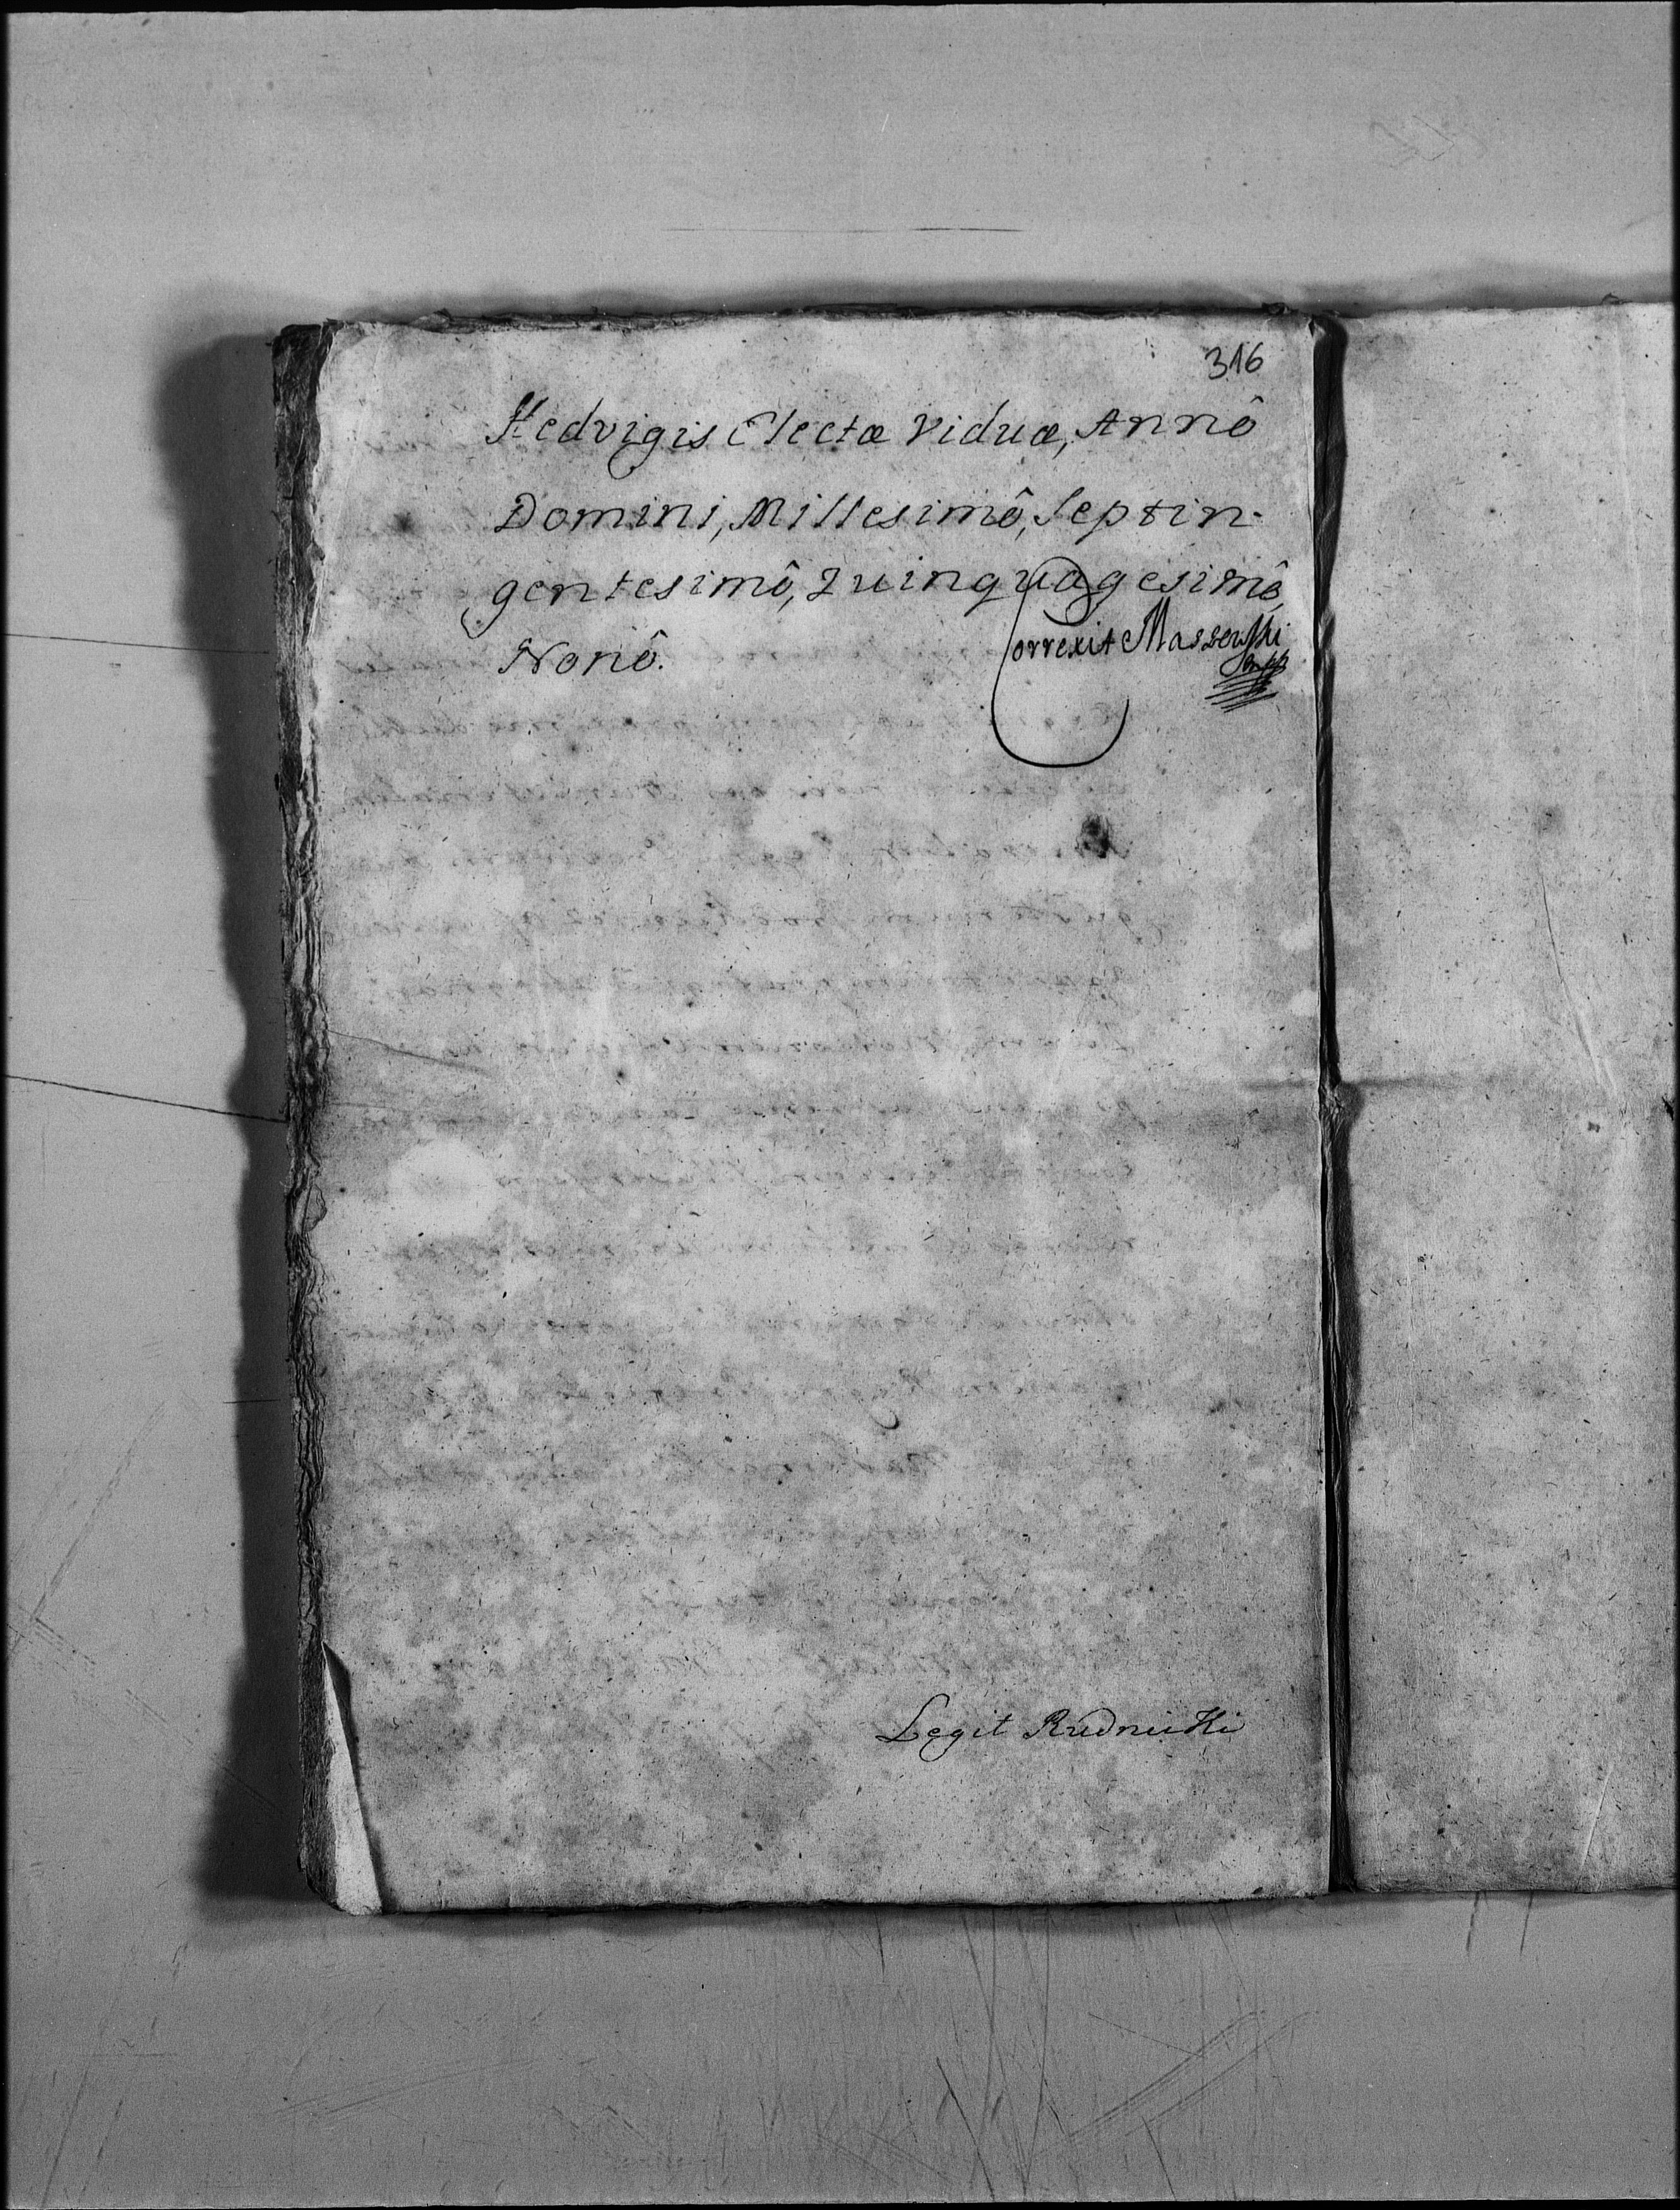 316
Hedvigis Electæ Viduæ, Annô
Domini, Millesimô, Septin-
gentesimô, Quinquagesimô,
Nonô.
Correxit Massewski
Legit Rudnicki